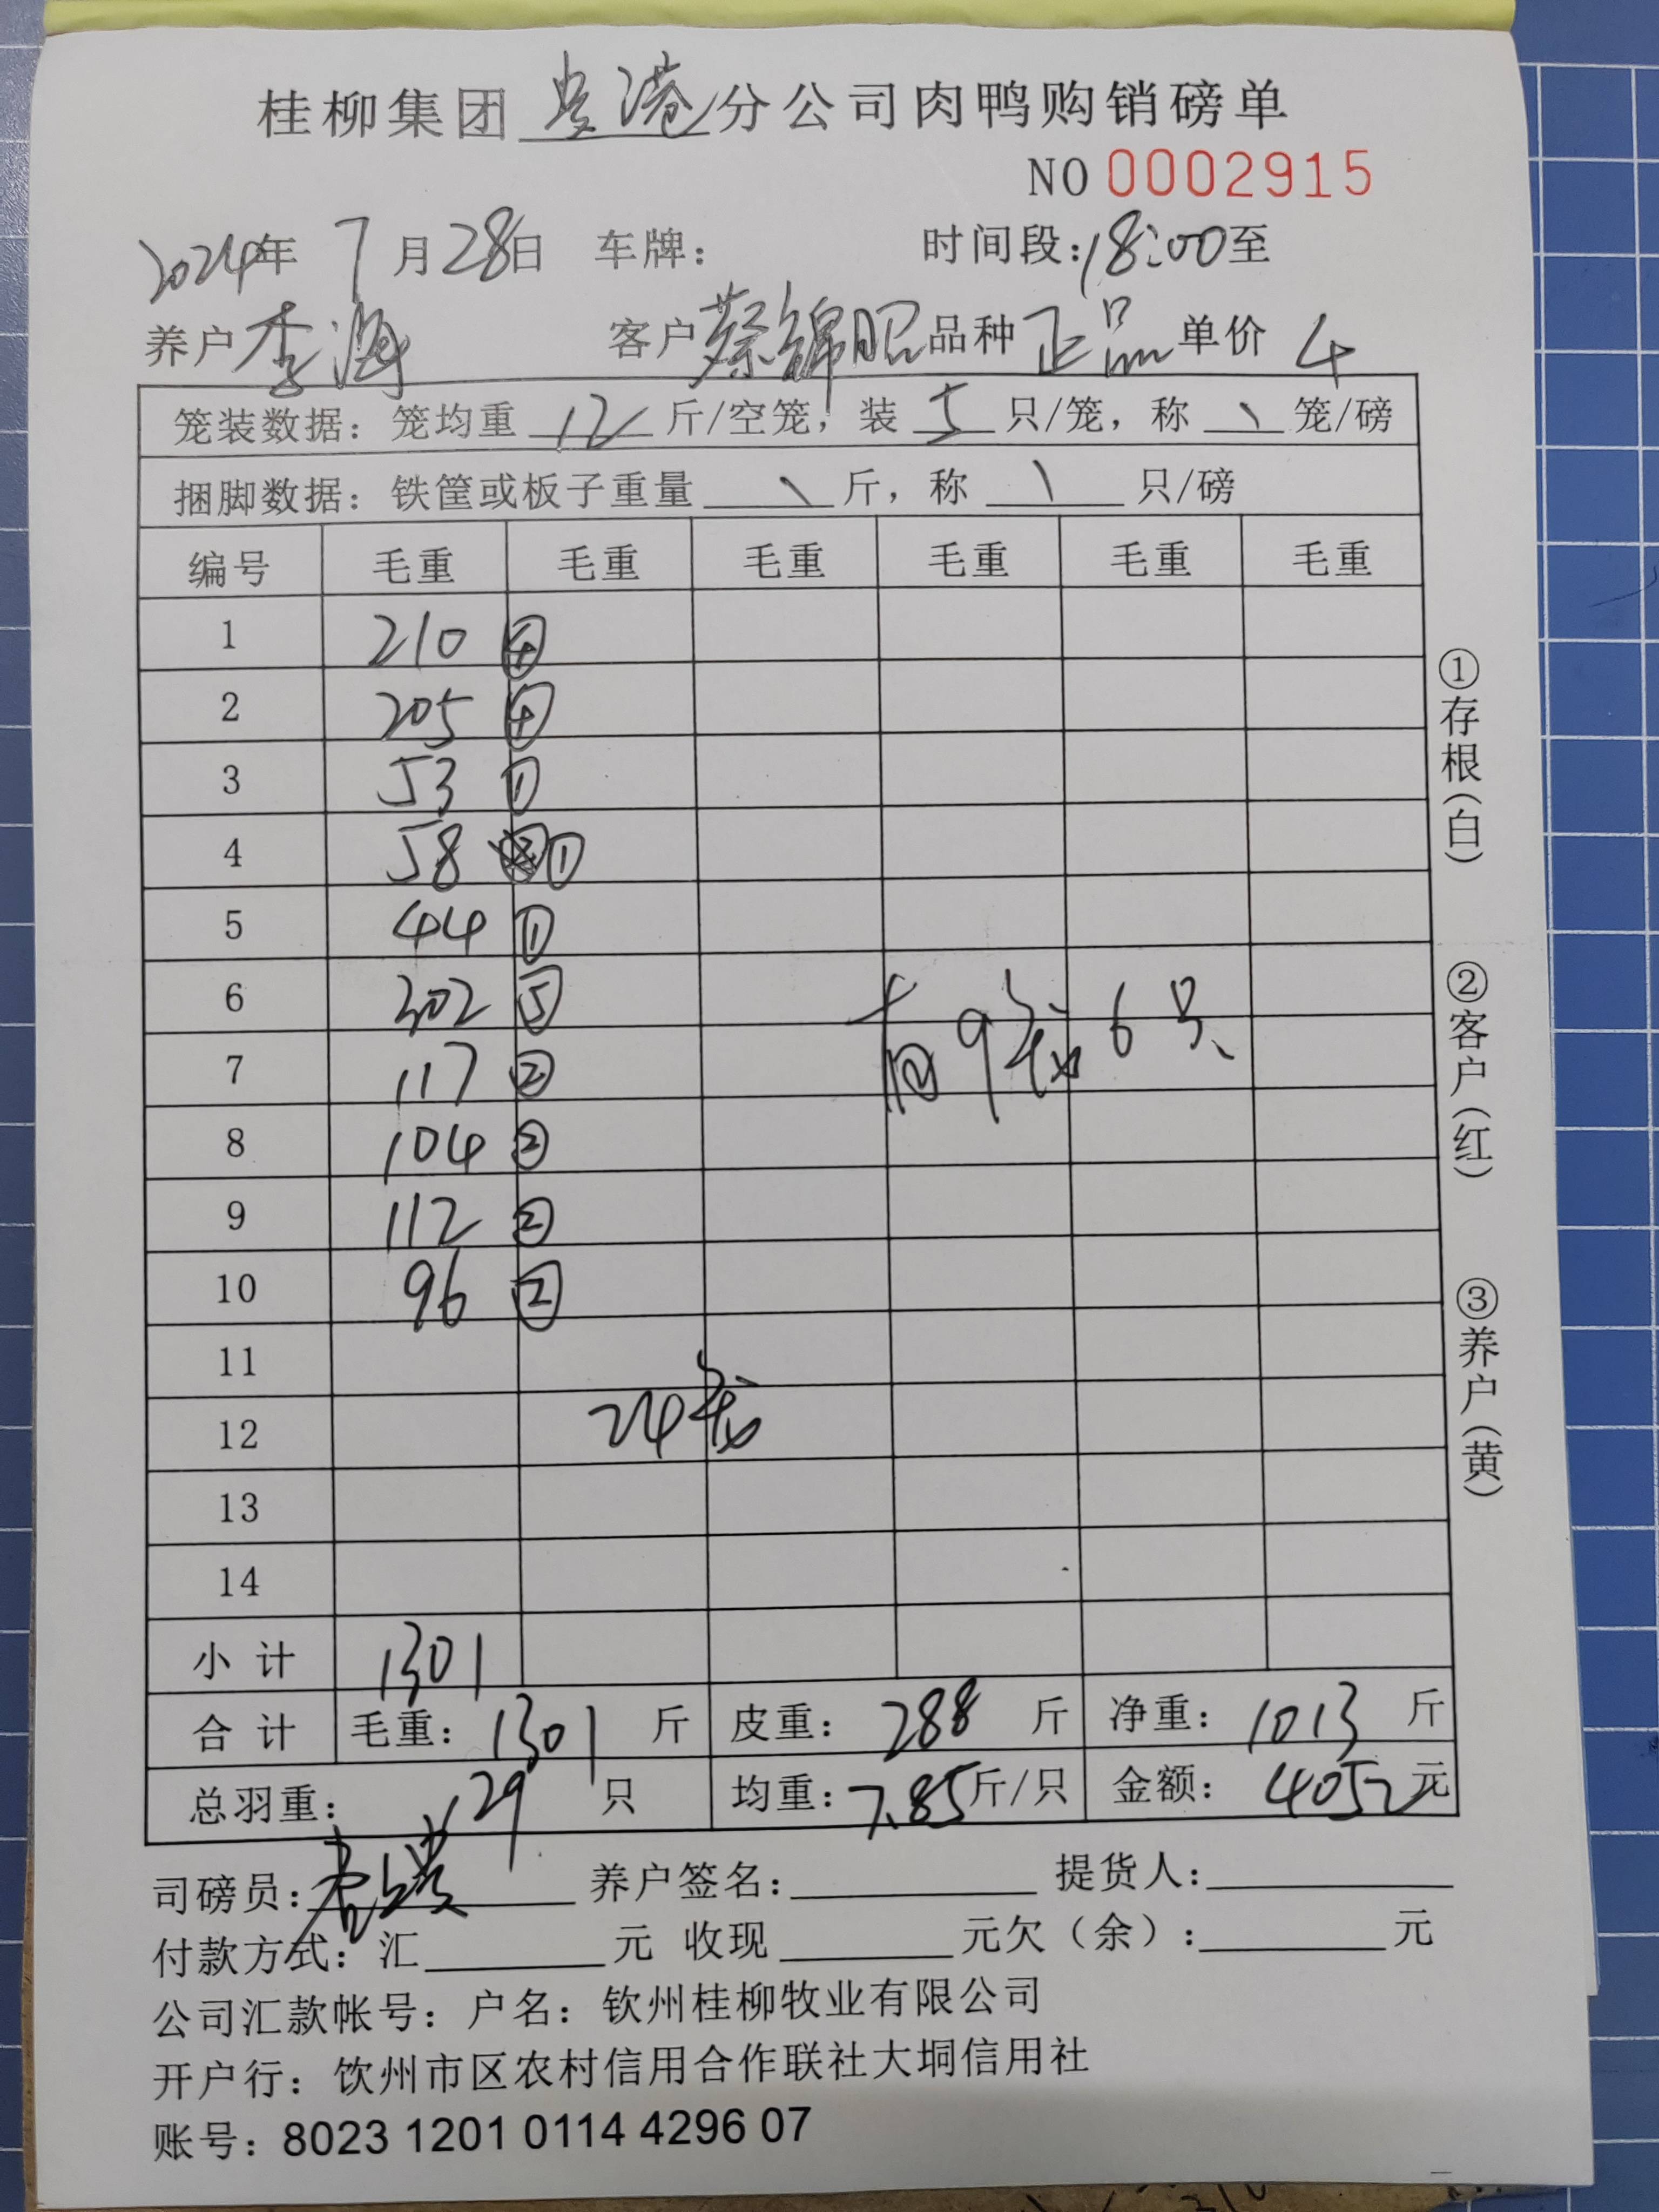 桂柳集团 贵港 分公司肉鸭购销磅单
NO 0002915
2024年 7月28日 车牌： 时间段：18:00至
养户 李海 客户 蔡锦昭 品种 正品 单价 4
笼装数据：笼均重 12 斤/空笼，装 5 只/笼，称 、 笼/磅
捆脚数据：铁筐或板子重量 、 斤，称 、 只/磅
编号 毛重 毛重 毛重 毛重 毛重 毛重
1 210 ④
2 205 ④
3 53 ①
4 58 ①
5 44 ①
6 302 ⑤
7 117 ②
8 104 ②
9 112 ②
10 96 ②
有9笼6只
11
12
24笼
13
14
小计 1301
合计 毛重：1301 斤 皮重：288 斤 净重：1013 斤
总羽重：129 只 均重：7.85斤/只 金额：4052元
司磅员： 养户签名： 提货人：
付款方式：汇 元 收现 元欠（余）： 元
公司汇款帐号：户名：钦州桂柳牧业有限公司
开户行：饮州市区农村信用合作联社大垌信用社
账号：8023 1201 0114 4296 07
①存根（白）
②客户（红）
③养户（黄）